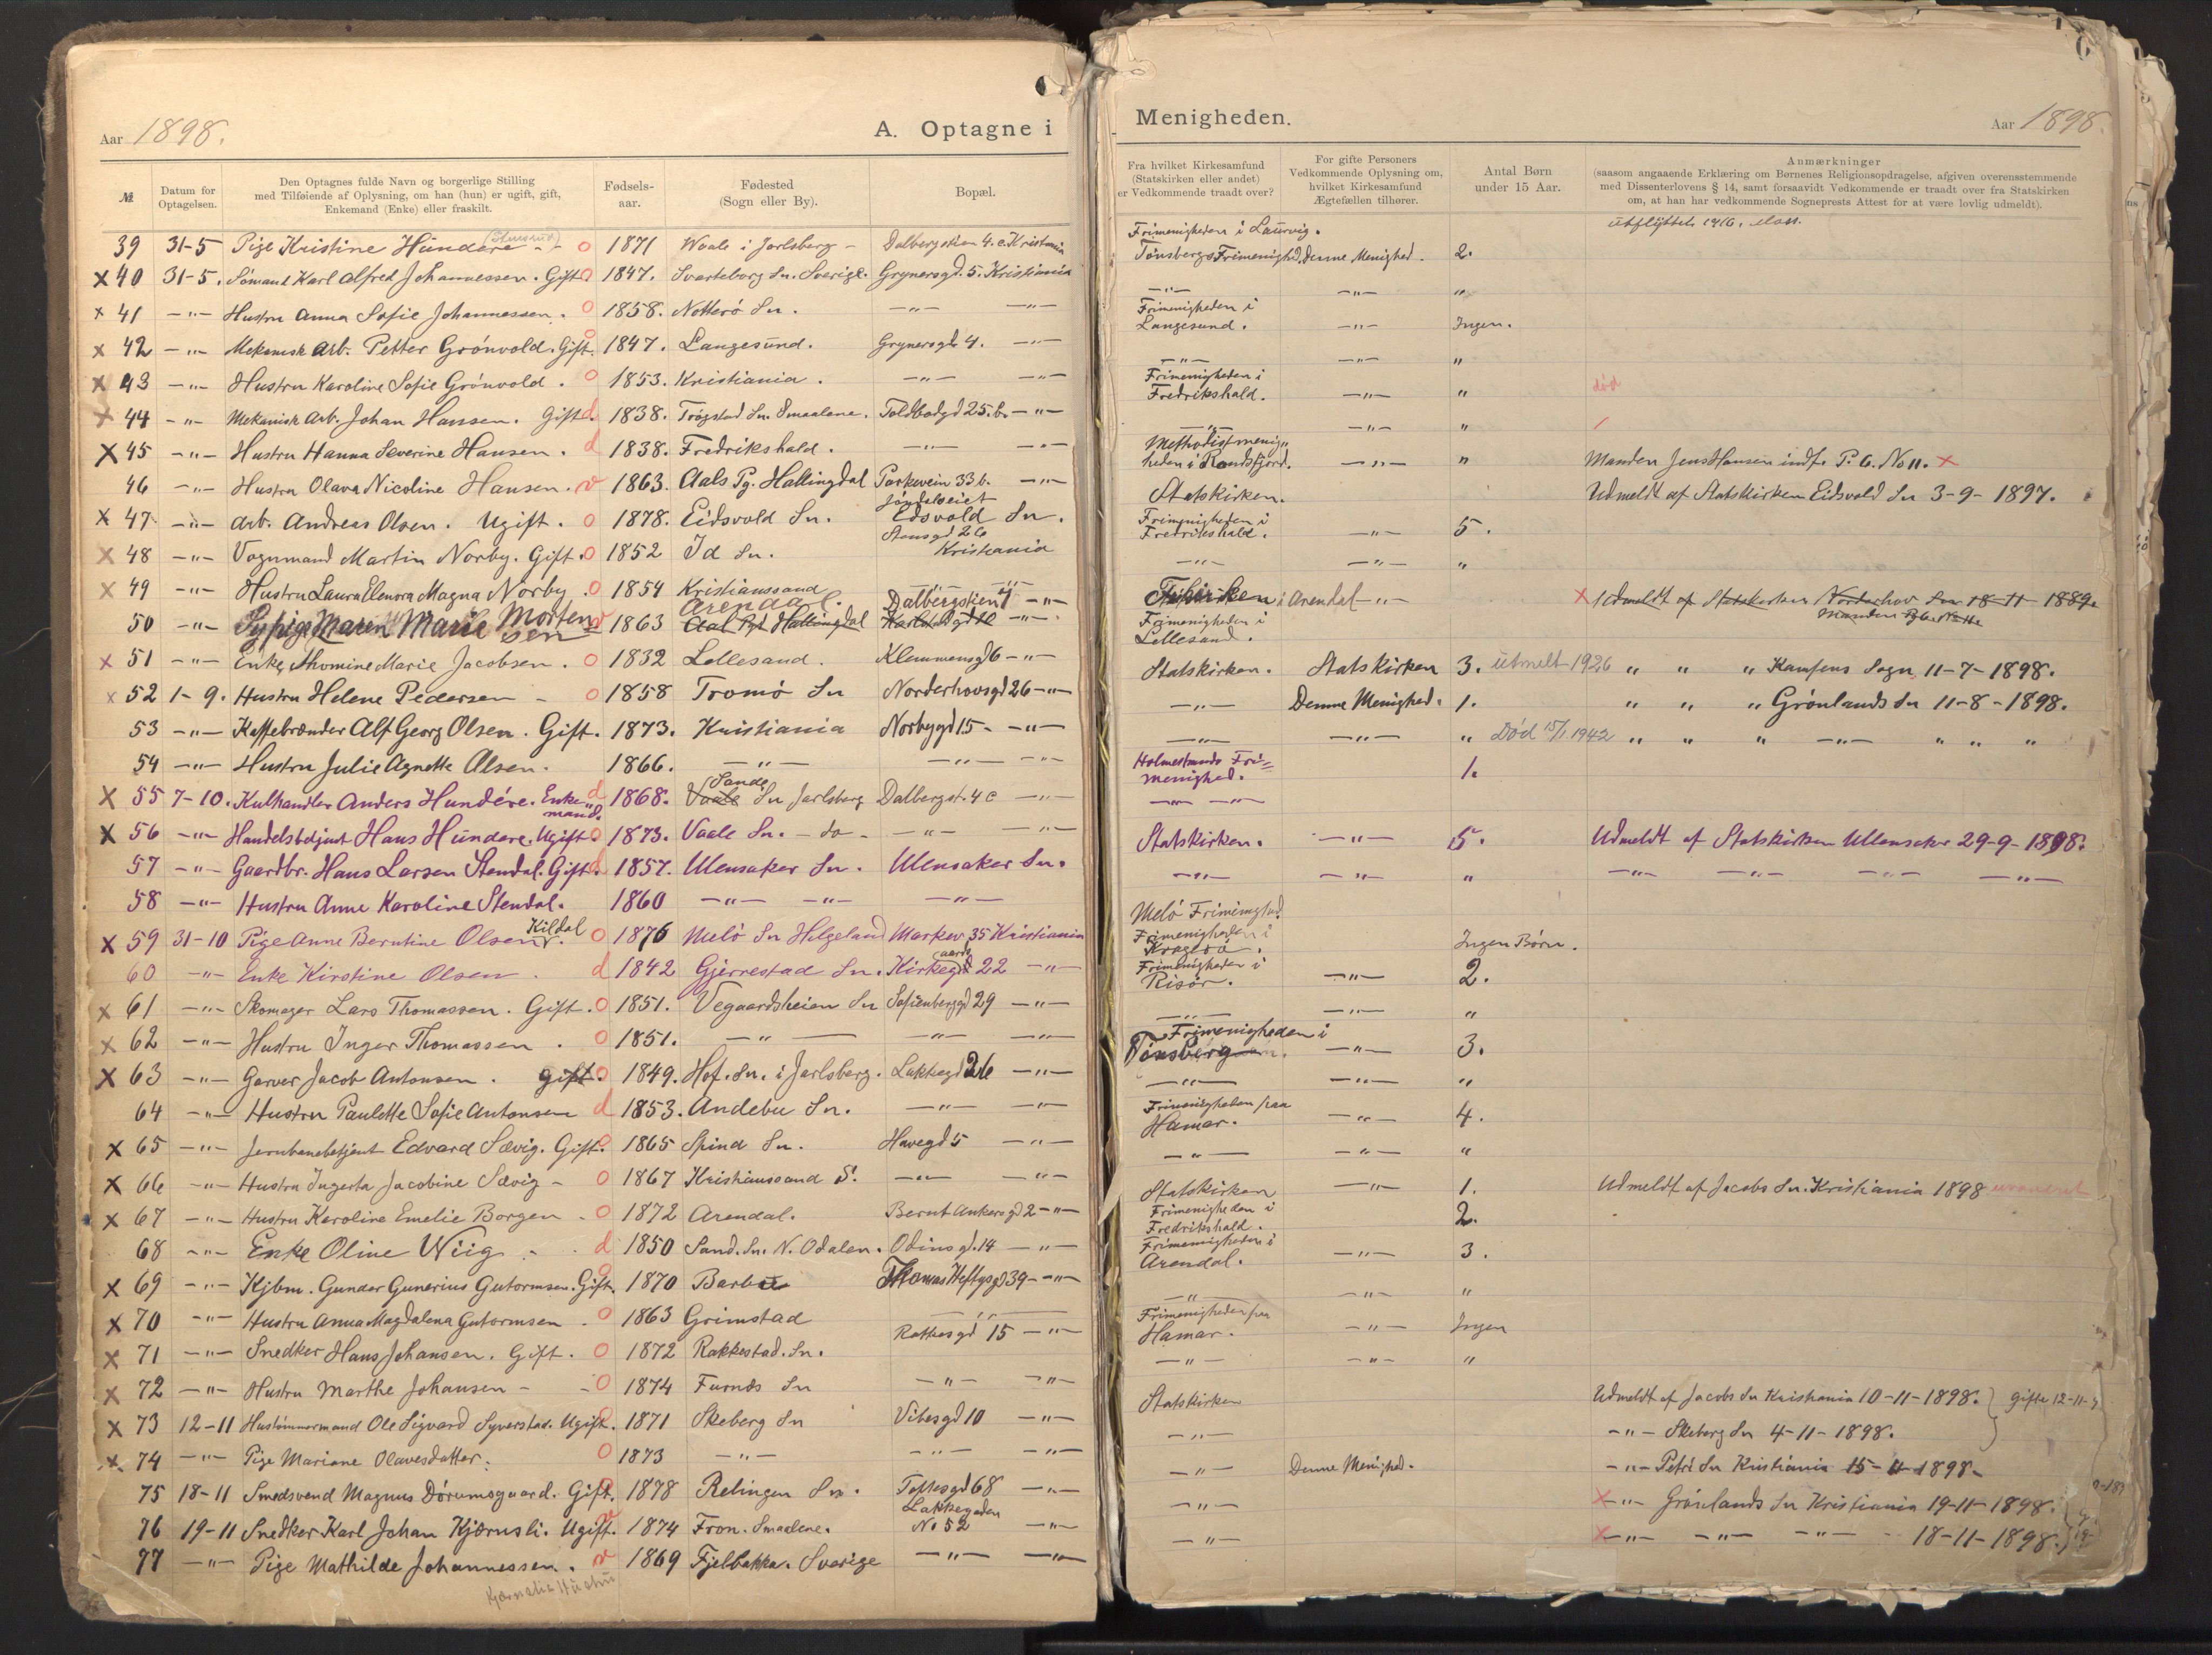 Aar 1898.
A. Optagne i
№
Datum for Optagelsen.
Den Optagnes fulde Navn og borgerlige Stilling
med Tilføiende af Oplysning, om han (hun) er ugift, gift,
Enkemand (Enke) eller fraskilt.
Fødsels-
aar.
Fødested
(Sogn eller By).
Bopæl.
39 31-5 Pige Kristine Hundere - o 1871 Waale i Jarlsberg - Dalbergstien 4. c. Kristiania
x 40 31-5. Sømand Karl Alfred Johannessen. Gift. o 1847. Svarteborg Sn. Sverige. Grynersgd. 5. Kristiania
x 41 -"- Hustru Anna Sofie Johannessen. o 1858. Notterø Sn. -"- -"-
x 42 -"- Mekanisk Arb. Petter Grönvold. Gift. o 1847. Langesund. Grynersgd. 4. -"-
x 43 -"- Hustru Karoline Sofie Grönvold. o 1853. Kristiania. -"- -"-
x 44 -"- Mekanisk Arb. Johan Hansen. Gift. d 1838. Trøgstad Sn. Smaalene. Toldbodgd 25. b. -"-
x 45 -"- Hustru Hanna Severine Hansen. d 1838. Fredrikshald. -"- -"-
46 -"- Hustru Olava Nicoline Hansen. v 1863. Aals Pg. Hallingdal Parkvein 33 b. -"-
x 47 -"- Arb. Andreas Olsen. Ugift. o 1878. Eidsvold Sn. Edsvold Sn.
x 48 -"- Vognmand Martin Norby. Gift. o 1852 Id Sn. Stensgd 26 Kristiania
x 49 -"- Hustru Laura Elenora Magna Norby. o 1854 Kristianssand -"- -"-
50 -"- Sypige Maren Marie Mortensen v 1863 Arendal. Aal Pgd Hallingdal Dalbergstien 4 -"-
x 51 -"- Enke Thomine Marie Jacobsen. o 1832 Lellesand. Klemmensgd 6 -"-
x 52 1-9. Hustru Helene Pedersen - o 1858 Tromö Sn Norderhovsgd 26 -"-
53 -"- Kaffebrænder Alf Georg Olsen. Gift. 1873. Kristiania Norbygd 15 - -"-
54 -"- Hustru Julie Agnette Olsen. 1866. -"- -"- -"-
x 55 7-10. Kulhandler Anders Hundére. Enkemand. d 1868. Sande Vaale Sn Jarlsberg Dalbergst. 4 c -"-
x 56 -"- Handelsbetjent Hans Hundere. Ugift. o 1873. Vaale Sn. - do - -"- -"-
57 -"- Gaardbr. Hans Larsen Stendal. Gift. d 1857. Ullensaker Sn. Ullensaker Sn.
58 -"- Hustru Anne Karoline Stendal. 1860 -"- -"- -"-
x 59 31-10 Pige Anne Berntine Olsen. Kildal o 1876 Melö Sn Helgeland Markev 35 Kristiania
60 -"- Enke Kirstine Olsen. d 1842 Gjerrestad Sn. Kirkegd 22 -"-
x 61 -"- Skomager Lars Thomassen. Gift. o 1851. Vegaardsheien Sn Sofienberggd 29 -"-
x 62 -"- Hustru Inger Thomassen. o 1851. -"- -"- -"-
x 63 -"- Garver Jacob Antonsen. gift. o 1849. Hof. Sn. i Jarlsberg. Lakkegd 26 -"-
64 -"- Hustru Paulette Sofie Antonsen d 1853. Andebu Sn. -"- -"-
x 65 -"- Jernbanebetjent Edvard Sævig. Gift. o 1865 Spind Sn. Havegd 5 -"-
x 66 -"- Hustru Ingerta Jacobine Sævig - o 1867 Kristianssand S. -"- -"-
x 67 -"- Hustru Karoline Emelie Borgen - o 1872 Arendal. Bernt Ankersgd 2 -"-
68 -"- Enke Oline Wiig - d 1850 Sand. Sn. N. Odalen. Odinsgd. 14 -"-
x 69 -"- Kjbm. Gunder Gunerius Gutormsen. Gift. o 1870 Barbu Thomas Heftysgd 39 - -"-
x 70 -"- Hustru Anna Magdalena Gutormsen. o 1863 Grimstad -"-
x 71 -"- Snedker Hans Johansen. Gift. o 1872 Rakkestad. Sn. Rathesgd 15 -"-
x 72 -"- Hustru Marthe Johansen - o 1874 Furnæs Sn -"- -"-
x 73 12-11 Hustømmermand Ole Sigvard Syverstad. Ugift. o 1871 Skeberg Sn Vibesgd 10 -"-
x 74 -"- Pige Mariane Olavesdatter. o 1873 -"- -"- -"-
75 18-11 Smedsvend Magnus Dörumsgaard. Gift. 1878 Relingen Sn. Toftesgd 68 -"-
76 19-11 Snedker Karl Johan Kjærnsli. Ugift. v 1874 Tron. Smaalene. Lakkegaden No 52 -"-
77 -"- Pige Mathilde Johannessen. v 1869 Fjelbakka. Sverige -"- -"-
Menigheden.
Aar 1898.
Fra hvilket Kirkesamfund
(Statskirken eller andet)
er Vedkommende traadt over?
For gifte Personers
Vedkommende Oplysning om,
hvilket Kirkesamfund
Ægtefællen tilhører.
Antal Børn
under 15 Aar.
Anmærkninger
(saasom angaaende Erklæring om Børnenes Religionsopdragelse, afgiven overensstemmende
med Dissenterlovens § 14, samt forsaavidt Vedkommende er traadt over fra Statskirken
om, at han har vedkommende Sogneprests Attest for at være lovlig udmeldt).
Frimenigheden i Laurvig. utflyttet 1916.
Tönsbergs Frimenighed. Denne Menighed. 2.
-"- -"- "
Frimenigheden i
Langesund. -"- Ingen.
-"- -"- "
Frimenigheden i
Fredrikshald. -"- " død
-"- -"- "
Methodistmenig-
heden i Randsfjord. -"- " Manden Jens Hansen indf. P. 6. No 11. x
Statskirken. Udmeldt af Statskirken Eidsvold Sn 3-9-1897.
Frimenigheden i
Fredrikshald. -"- 5.
-"- -"- "
i Arendal -"- x Udmeldt af Statskirken Norderhov Sn 18-11-1889.
Frimenigheden i
Lillesand.
Statskirken. Statskirken 3. utmelt 1926 " " " Kampens Sogn 11-7-1898.
-"- Denne Menighed. 1. " " " Grönlands Sn 11-8-1898.
-"- -"- " Död 15/1 1942 " " " -"- " " "
Holmestrands Fri-
menighed. 1.
-"- -"-
Statskirken. -"- 5. Udmeldt af Statskirken Ullensaker 29-9-1898.
-"- -"- " -"- -"- -"- -"-
Melö Frimenighed.
Frimenigheden i
Kragerö. Ingen Börn.
Frimenigheden i
Risör. -"- 2.
-"- -"- "
Frimenigheden i
Tönsberg -"- 3.
-"- -"- "
Frimenigheden paa
Hamar. -"- 4.
-"- -"- "
Statskirken -"- 1. Udmeldt af Jacobs Sn. Kristiania 1898
Frimenigheden i
Fredrikshald. 2.
Frimenigheden i
Arendal. -"- 3.
-"- -"- "
Frimenigheden paa
Hamar. -"- Ingen
-"- -"- "
Statskirken Udmeldt af Jacobs Sn Kristiania 10-11-1898. gifte 12-11-
-"- -"- Skeberg Sn 4-11-1898.
-"- Denne Menighed. -"- Petri Sn Kristiania 15-11-1898-
-"- x -"- Grönlands Sn Kristiania 19-11-1898.
-"- x -"- -"- -"- 18-11-1898.